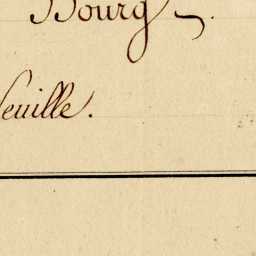 Bourg.
feuille.